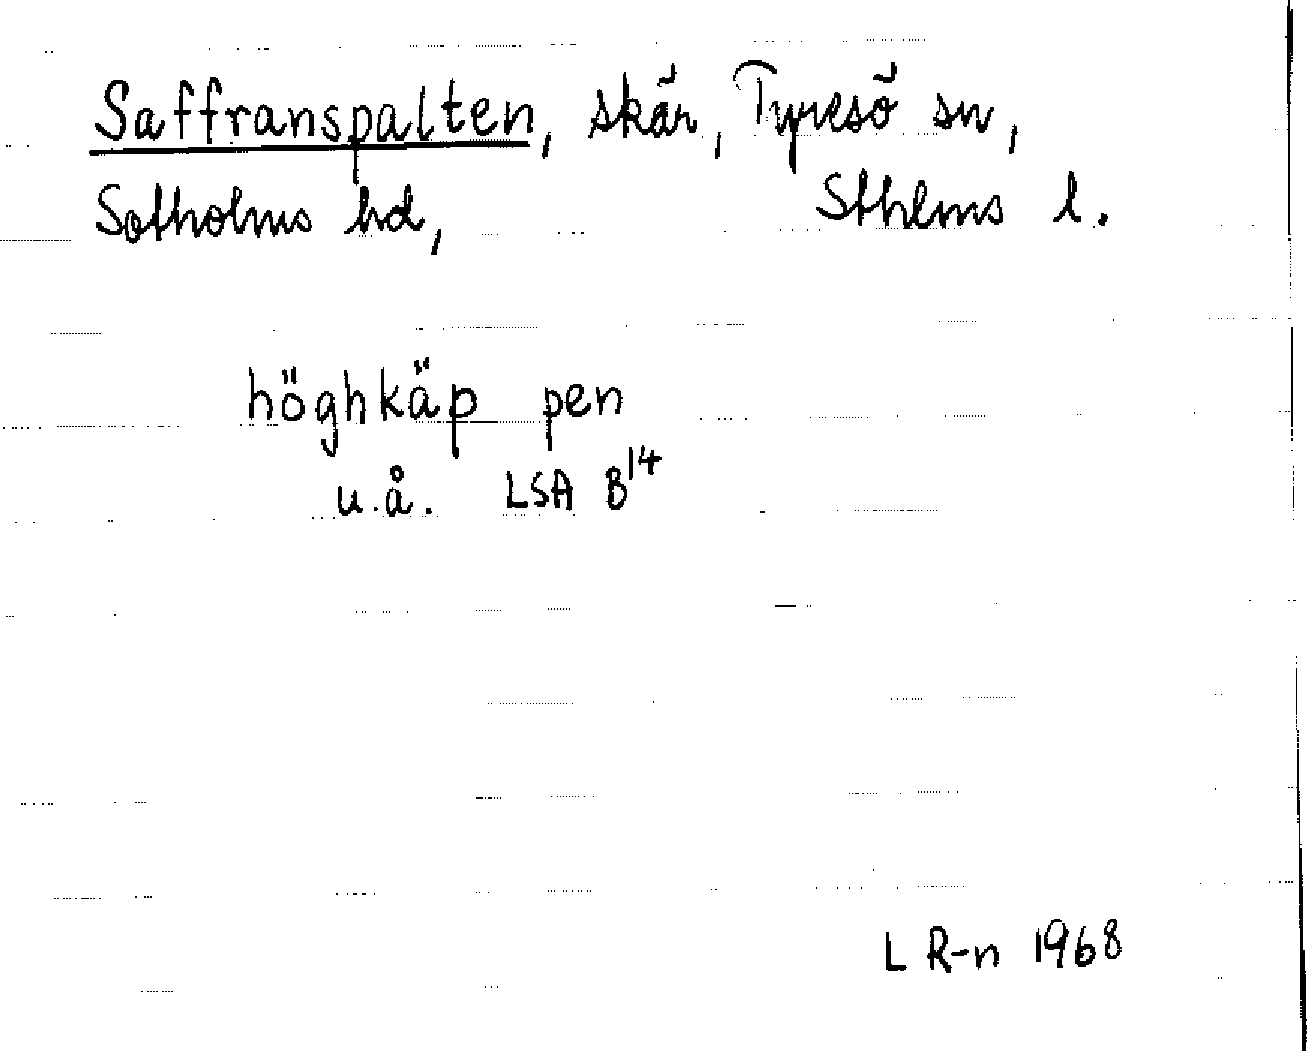 Saffranspalten, skär, Tyresö sn,
Sotholms hd, Sthlms l.
höghkäp pen
u.å. LSA B¹⁴
L R-n 1968